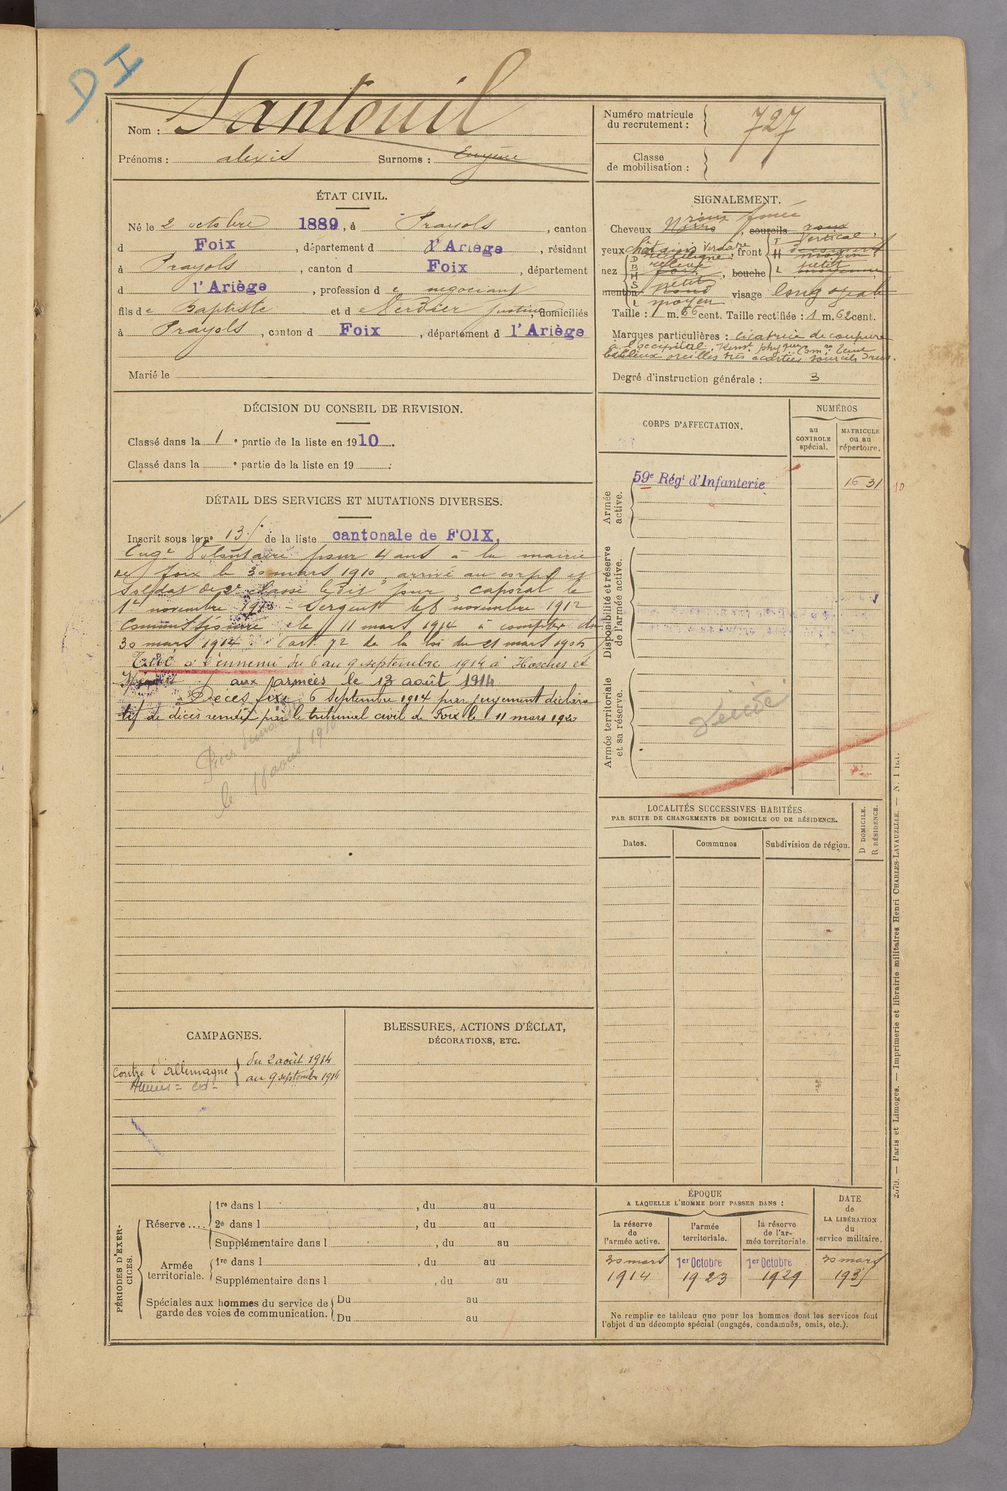 D I
Nom : Santouil
Prénoms : alexis Surnoms : Eugène
Numéro matricule du recrutement : 727
Classe de mobilisation :
ÉTAT CIVIL.
Né le 2 octobre 1889, à Prayols, canton
d Foix, département d l'Ariège, résidant
à Prayols, canton d Foix, département
d l'Ariège, profession d e négociant
fils d e Baptiste et d e Verdier Justine, domiciliés
à Prayols, canton d Foix, département d l'Ariège
Marié le
SIGNALEMENT.
Cheveux roux foncé sourcils roux
yeux front vertical
nez bouche
menton moyen visage long ovale
Taille : 1 m. 66 cent. Taille rectifiée : 1 m. 62 cent.
Marques particulières : cicatrice de coupure
à l'occipital
oreilles très écartées sourcils
Degré d'instruction générale : 3
DÉCISION DU CONSEIL DE REVISION.
Classé dans la 1e partie de la liste en 1910.
Classé dans la e partie de la liste en 19 .
DÉTAIL DES SERVICES ET MUTATIONS DIVERSES.
Inscrit sous le no 13 de la liste cantonale de FOIX.
Engé Volontaire pour 4 ans à la mairie
de Foix le 30 mars 1910, arrivé au corps et
soldat de 2e classe le dit jour, caporal le
1er novembre 1910 - Sergent le 8 novembre 1912
Commissionné le 11 mars 1914 à compter du
30 mars 1914 (art. 72 de la loi du 21 mars 1905
Tué à l'ennemi du 6 au 9 septembre 1914 à Hosches et
aux armées le 13 août 1914
Décès fixé 6 septembre 1914 par jugement déclara
tif de décès rendu par le tribunal civil de Foix le 11 mars 1920
CORPS D'AFFECTATION.
NUMÉROS
au CONTROLE spécial.
MATRICULE ou au répertoire.
Armée active.
59e Régt d'Infanterie 1631
10
Disponibilité et réserve de l'armée active.
Armée territoriale et sa réserve.
Décédé
LOCALITÉS SUCCESSIVES HABITÉES
PAR SUITE DE CHANGEMENTS DE DOMICILE OU DE RÉSIDENCE.
Dates. Communes. Subdivision de région. D DOMICILE. R RÉSIDENCE.
CAMPAGNES.
Contre l'Allemagne du 2 août 1914
au 9 septembre 1914
BLESSURES, ACTIONS D'ÉCLAT,
DÉCORATIONS, ETC.
PÉRIODES D'EXERCICES.
Réserve....
1re dans l , du au
2e dans l , du au
Supplémentaire dans l , du au
Armée territoriale.
1re dans l , du au
Supplémentaire dans l , du au
Spéciales aux hommes du service de garde des voies de communication.
Du au
Du au
ÉPOQUE
A LAQUELLE L'HOMME DOIT PASSER DANS :
la réserve de l'armée active. l'armée territoriale. la réserve de l'armée territoriale.
DATE de LA LIBÉRATION du service militaire.
30 mars 1914
1er Octobre 1923
1er Octobre 1929
30 mars 1935
Ne remplir ce tableau que pour les hommes dont les services font
l'objet d'un décompte spécial (engagés, condamnés, omis, etc.).
Paris et Limoges. — Imprimerie et librairie militaires Henri CHARLES-LAVAUZELLE.